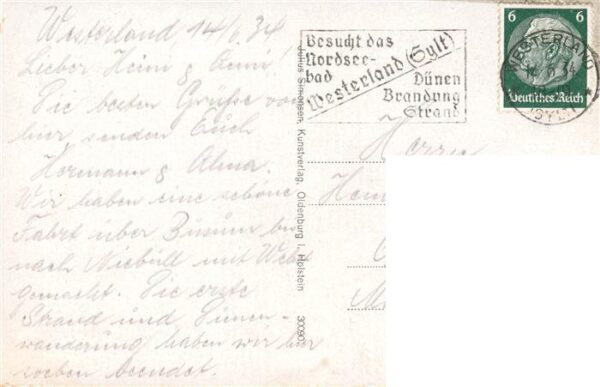 Westerland 14/6.34
Lieber Heini & Anni!
Die besten Grüße von
hier senden Euch
Hermann & Alma.
Wir haben eine schöne
Fahrt über Büsum bis
nach Niebüll mit
gemacht. Die erste
Strand und Dünen-
wanderung haben wir hier
soeben beendet.
Julius Simonsen, Kunstverlag, Oldenburg i. Holstein 30090
Besucht das
Nordsee-
bad
Westerland (Sylt)
Dünen
Brandung
Strand
6 6
Deutsches Reich
WESTERLAND
34
(SYLT)
Herrn